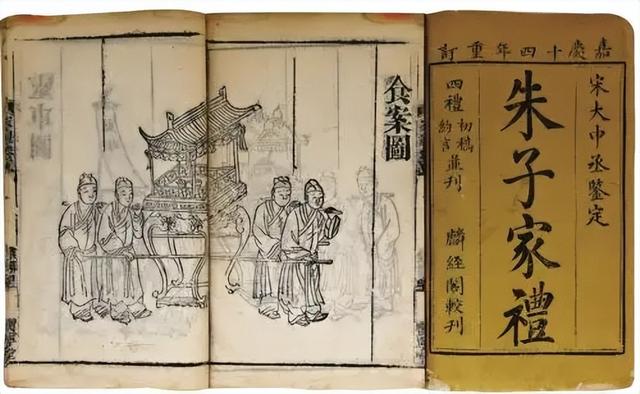 嘉慶十四年重訂
宋大中丞鑒定
朱子家禮
四禮初稿約言並刊
麟經閣較刊
食案圖